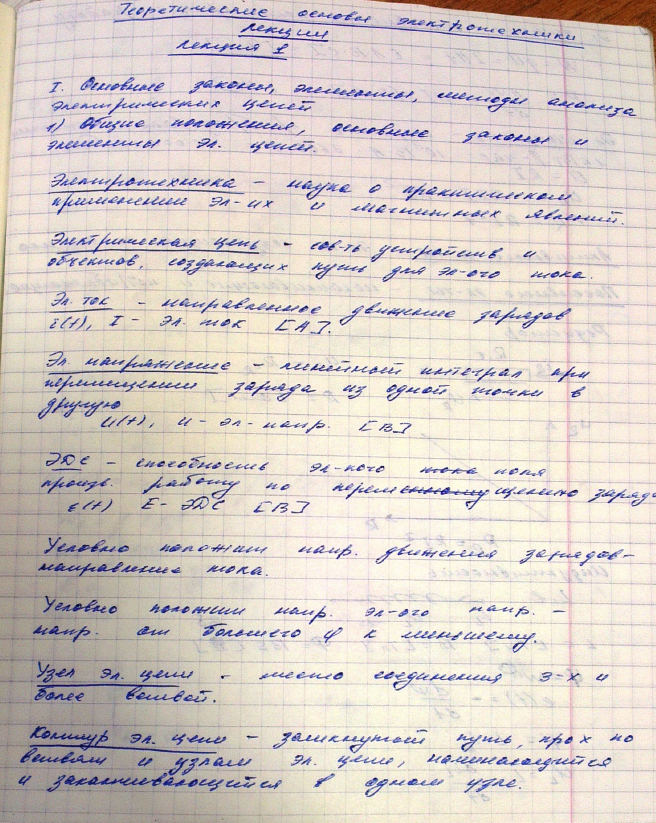 Теоретические основы электротехники
Лекции
Лекция 1
I. Основные законы, элементы, методы анализа
электрических цепей
1) Общие положения, основные законы и
элементы эл. цепей.
Электротехника - наука о практическом
применении эл-их и магнитных явлений.
Электрическая цепь - сов-ть устройств и
объектов, создающих путь для эл-ого тока.
Эл. ток - направленное движение зарядов
i(t), I - эл. ток [А].
Эл. напряжение - линейный интеграл при
перемещении заряда из одной точки в
другую
u(t), u - эл-напр. [В]
ЭДС - способность эл-кого тока поля
произв. работу по перемещению заряда
e(t) E - ЭДС [В]
Условно положит напр. движения зарядов-
направление тока.
Условно положит напр. эл-ого напр. -
напр. от большего φ к меньшему.
Узел эл. цепи - место соединения 3-х и
более ветвей.
Контур эл. цепи - замкнутый путь, прох по
ветвям и узлам эл. цепи, начинающийся
и заканчивающийся в одном узле.